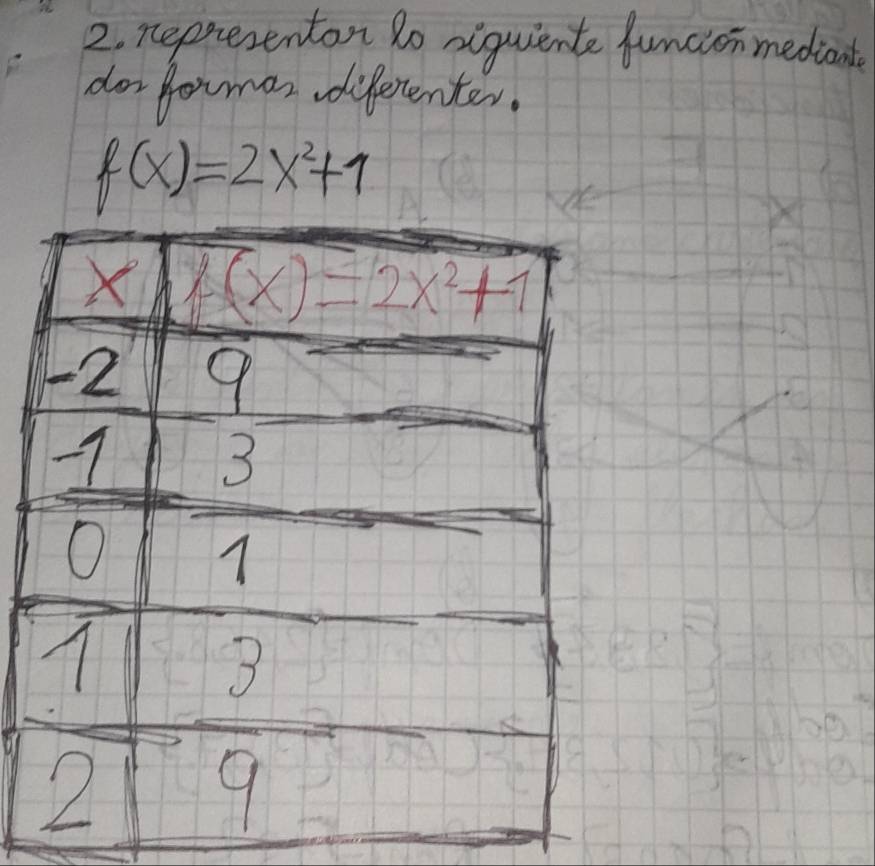 2. representar la siguiente función mediante
dos formas diferentes.
f(x)=2x²+1
x f(x)=2x²+1
-2 9
-1 3
0 1
1 3
2 9